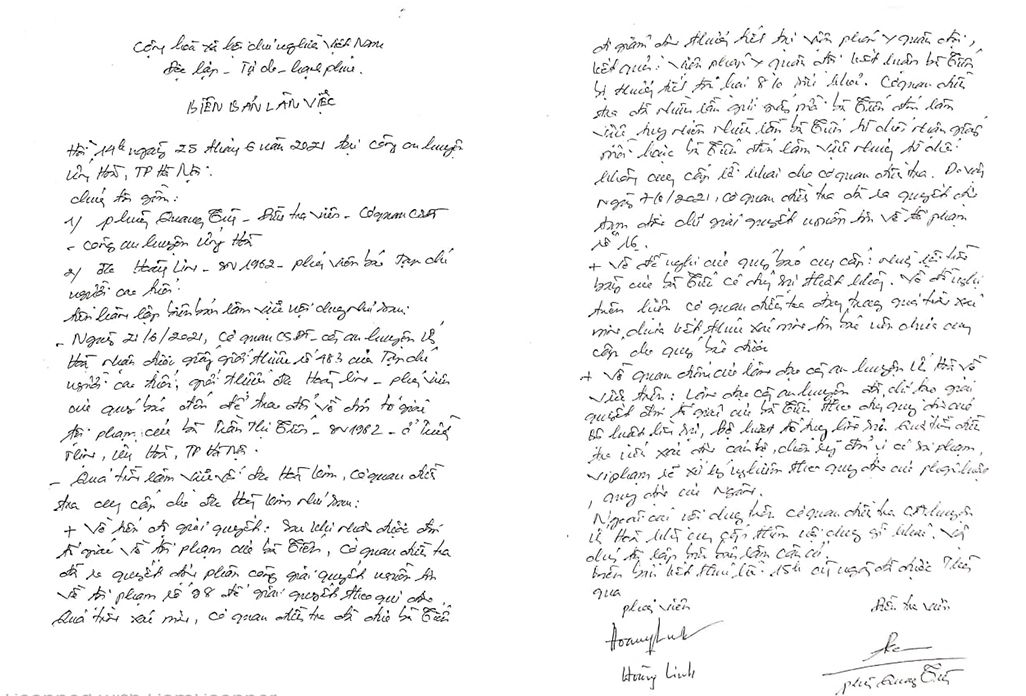 Cộng hoà xã hội chủ nghĩa Việt Nam
Độc lập - Tự do - hạnh phúc.
BIÊN BẢN LÀM VIỆC
Hồi 14h ngày 25 tháng 6 năm 2021 tại công an huyện
Ứng Hoà, TP Hà Nội.
chúng tôi gồm:
1/ Phùng Quang - Điều tra viên - Cơ quan CSĐT
- công an huyện Ứng Hoà
2) Hoàng Linh - SN 1962 - phóng viên báo Tạp chí
người cao tuổi.
tiến hành lập biên bản làm việc nội dung như sau:
- Ngày 21/6/2021, Cơ quan CSĐT - công an huyện Ứng
Hoà nhận được giấy giới thiệu số 483 của Tạp chí
người cao tuổi, giới thiệu Hoàng Linh - phóng viên
của quý báo đến để trao đổi về đơn tố giác
tội phạm của bà Trần Thị - SN 1962 - ở
Ứng Hoà, TP Hà Nội.
- Quá trình làm việc với Hoàng Linh, Cơ quan điều
tra cung cấp cho Hoàng Linh như sau:
+ Về giải quyết: Sau khi nhận được đơn
tố giác về tội phạm của bà, cơ quan điều tra
đã ra quyết định phân công giải quyết nguồn tin
về tội phạm số 98 để giải quyết theo quy định.
Quá trình xác minh, cơ quan điều tra đã đưa bà
đi giám định thương tích tại Viện pháp y quân đội,
kết quả: Viện pháp y quân đội kết luận bà
bị thương tích tổn hại 8% sức khoẻ. Cơ quan điều
tra đã nhiều lần gửi giấy mời bà đến làm
việc tuy nhiên nhiều lần bà từ chối nhận giấy
mời hoặc bà đến làm việc nhưng từ chối
không cung cấp lời khai cho cơ quan điều tra. Do vậy
Ngày /6/2021, cơ quan điều tra đã ra quyết định
tạm đình chỉ giải quyết nguồn tin về tội phạm
số 16.
+ Về đề nghị của quý báo cung cấp:
của bà có đúng sự thật không. Về đề nghị
trên hiện cơ quan điều tra đang trong quá trình xác
minh, chưa kết thúc xác minh tin báo nên chưa cung
cấp cho quý báo được
+ Về quan điểm của lãnh đạo công an huyện Ứng Hoà về
việc trên: Lãnh đạo công an huyện đã chỉ đạo giải
quyết đơn tố giác của bà theo đúng quy định của
Bộ luật hình sự, Bộ luật tố tụng hình sự. Quá trình điều
tra nếu xác định cán bộ, chiến sỹ đơn vị có sai phạm,
vi phạm sẽ xử lý nghiêm theo quy định của pháp luật
, quy định của Ngành.
Ngoài các nội dung trên cơ quan điều tra CA huyện
Ứng Hoà không cung cấp thêm nội dung gì khác. Với
nội dung trên lập biên bản làm căn cứ.
biên bản kết thúc hồi 15h cùng ngày đã được thông
qua
phóng viên
Điều tra viên
Hoàng Linh
Hoàng Linh
Phùng Quang